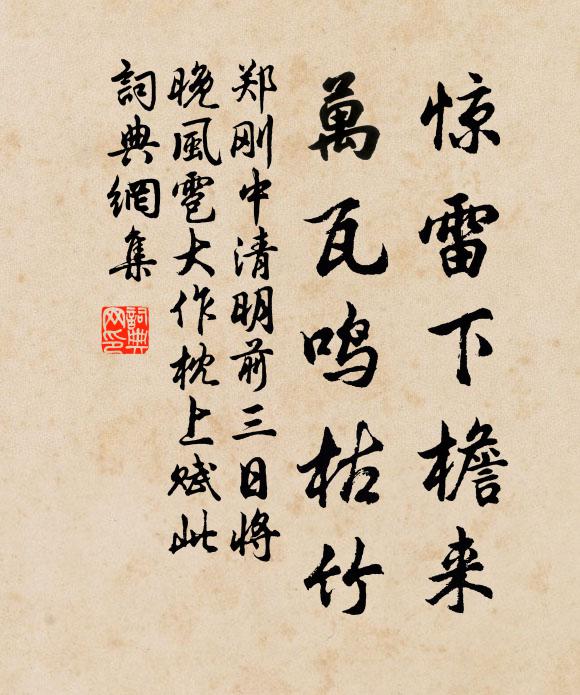 惊雷下檐来
萬瓦鸣枯竹
郑刚中清明前三日将
晚風雹大作枕上赋此
詞典網集
詞典
网印